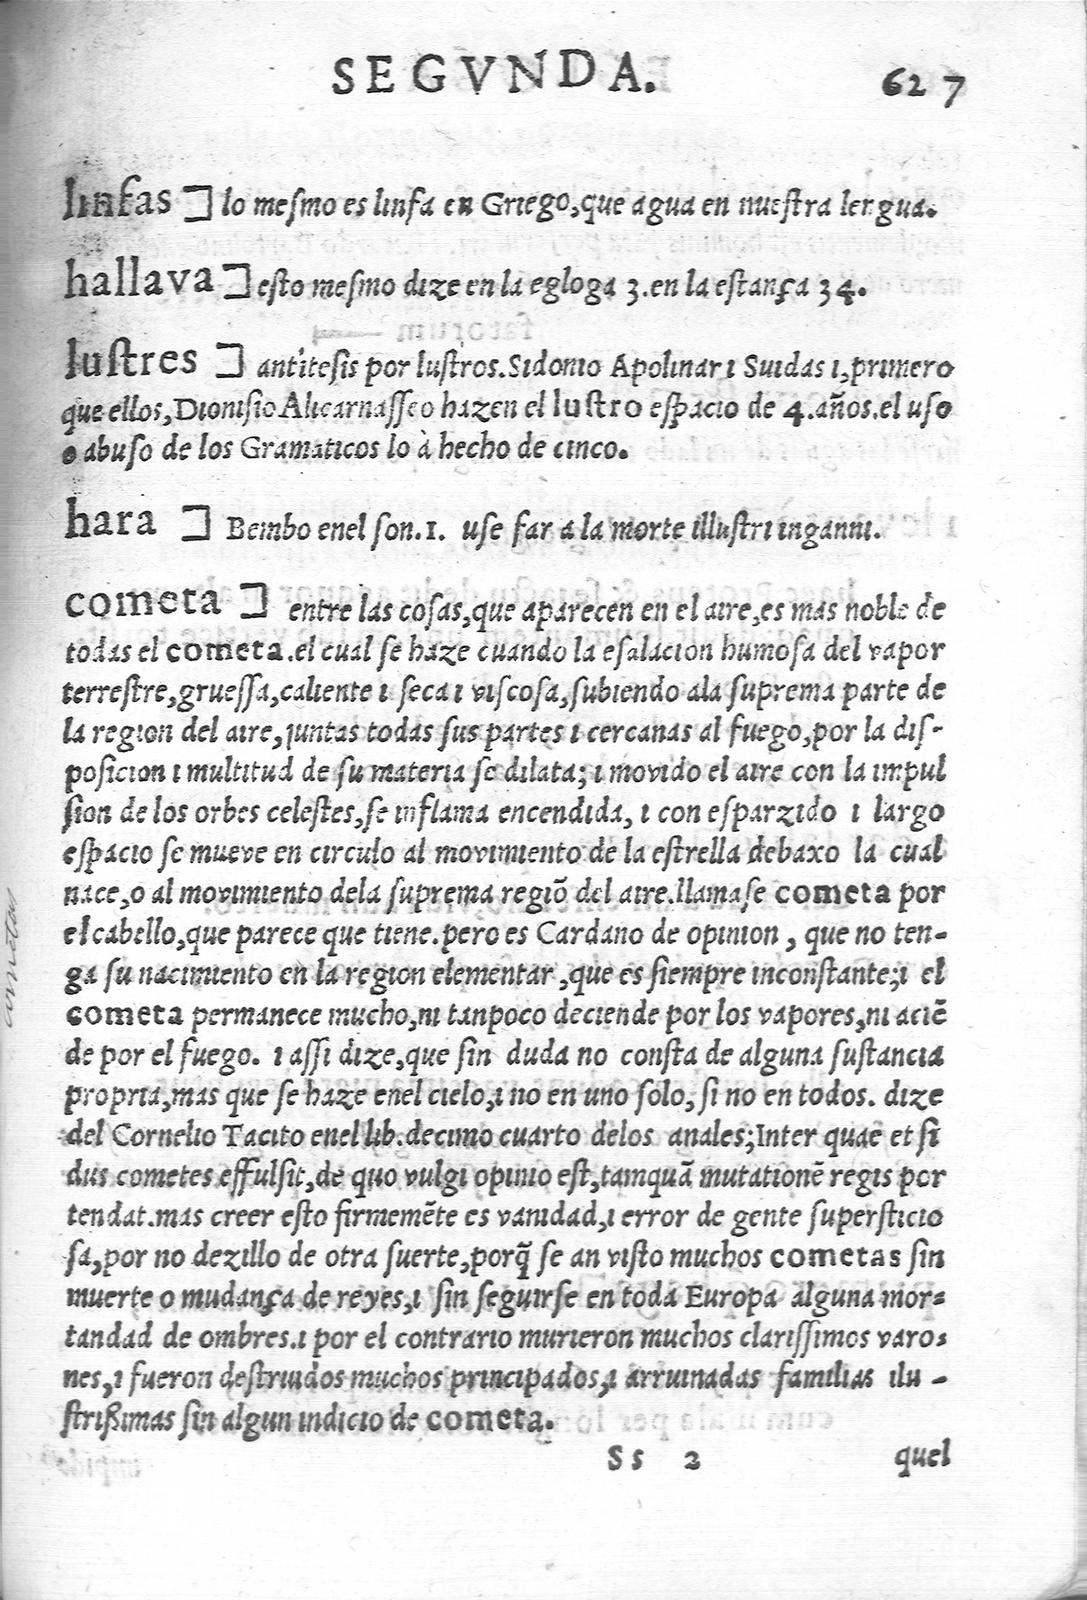 SEGVNDA. 627
linfas ] lo meſmo es linfa en Griego,que agua en nueſtra lengua.
hallava ] eſto meſmo dize en la egloga 3.en la eſtança 34.
luſtres ] antiteſis por luſtros.Sidonio Apolinar i Suidas i,primero
que ellos,Dioniſio Alicarnaſſeo hazen el luſtro eſpacio de 4.años.el uſo
o abuſo de los Gramaticos lo à hecho de cinco.
hara ] Bembo enel ſon.1. uſe far a la morte illuſtri inganni.
cometa ] entre las coſas,que aparecen en el aire,es mas noble de
todas el cometa.el cual ſe haze cuando la eſalacion humoſa del vapor
terreſtre,grueſſa,caliente i ſeca i viſcoſa,ſubiendo ala ſuprema parte de
la region del aire,juntas todas ſus partes i cercanas al fuego,por la diſ-
poſicion i multitud de ſu materia ſe dilata; i movido el aire con la impul
ſion de los orbes celeſtes,ſe inflama encendida, i con eſparzido i largo
eſpacio ſe mueve en circulo al movimiento de la eſtrella debaxo la cual
nace,o al movimiento dela ſuprema regiõ del aire.llamaſe cometa por
el cabello,que parece que tiene.pero es Cardano de opinion , que no ten-
ga ſu nacimiento en la region elementar ,que es ſiempre inconſtante;i el
cometa
cometa permanece mucho,ni tanpoco deciende por los vapores,ni aciẽ
de por el fuego. i aſſi dize,que ſin duda no conſta de alguna ſuſtancia
propria,mas que ſe haze enel cielo,i no en uno ſolo, ſi no en todos. dize
del Cornelio Tacito enel lib.decimo cuarto delos anales;Inter quae et ſi
dus cometes effulſit,de quo vulgi opinio eſt,tamquã mutationẽ regis por
tendat.mas creer eſto firmemẽte es vanidad,i error de gente ſuperſticio
ſa,por no dezillo de otra ſuerte,porq̃ ſe an viſto muchos cometas ſin
muerte o mudança de reyes,i ſin ſeguirſe en toda Europa alguna mor-
tandad de ombres.i por el contrario murieron muchos clariſſimos varo-
nes,i fueron deſtruidos muchos principados,i arruinadas familias ilu -
ſtriſsimas ſin algun indicio de cometa.
Ss 2 quel